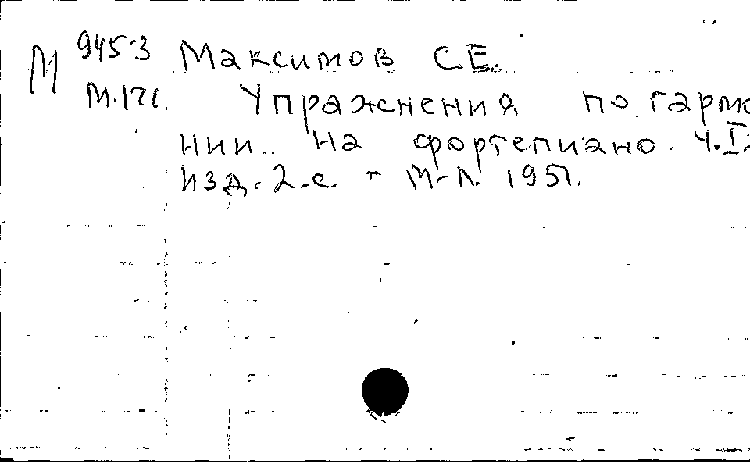 М 945-3 Максимов С.Е.
М.171. Упражнения по гармо
нии на фортепиано. Ч.I.
изд. 2-е. - М-Л. 1951.